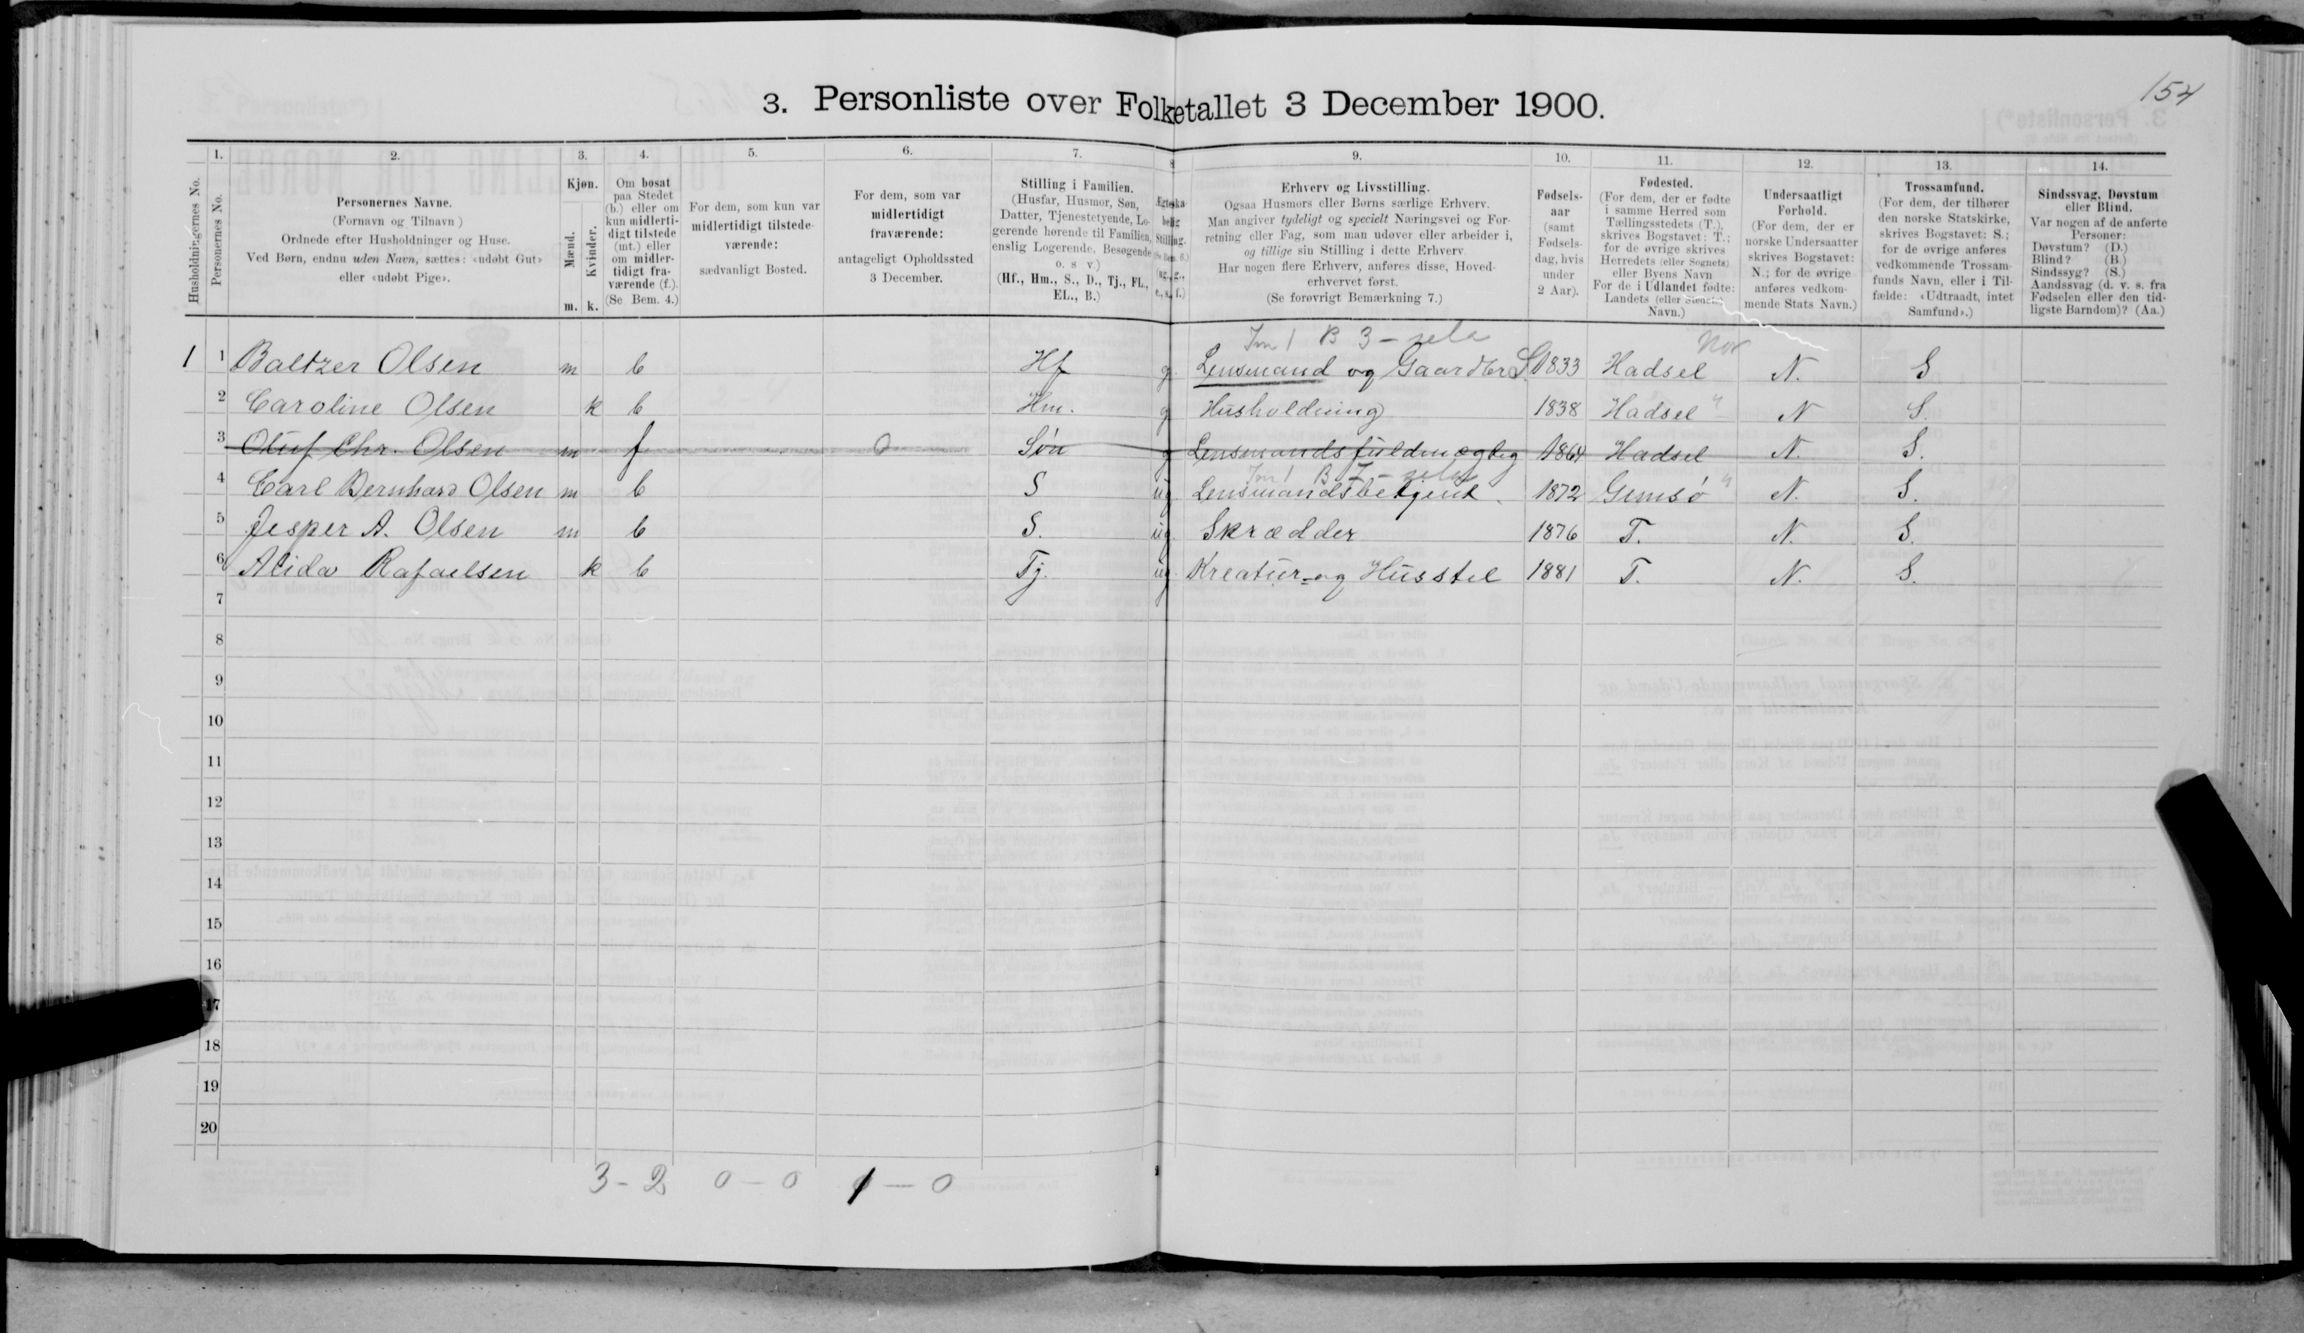 154
3. Personliste over Folketallet 3 December 1900.
1. 2. 3. 4. 5. 6. 7. 8 9. 10. 11. 12. 13. 14.
Husholdningernes No.
Personernes No.
Personernes Navne.
(Fornavn og Tilnavn)
Ordnede efter Husholdninger og Huse.
Ved Børn, endnu uden Navn, sættes: «udøbt Gut»
eller «udøbt Pige».
Kjøn.
Mænd.
Kvinder.
m. k.
Om bosat
paa Stedet
(b.) eller om
kun midlerti-
digt tilstede
(mt.) eller
om midler-
tidigt fra-
værende (f.).
(Se Bem. 4.)
For dem, som kun var
midlertidigt tilstede-
værende:
sædvanligt Bosted.
For dem, som var
midlertidigt
fraværende:
antageligt Opholdssted
3 December.
Stilling i Familien.
(Husfar, Husmor, Søn,
Datter, Tjenestetyende, Lo-
gerende hørende til Familien,
enslig Logerende, Besøgende
o. s v.)
(Hf., Hm., S., D., Tj., FL.,
EL., B.)
Ægteska-
belig
Stilling.
(Se Bem. 6.)
(ug., g.,
e., s., f.)
Erhverv og Livsstilling.
Ogsaa Husmors eller Børns særlige Erhverv.
Man angiver tydeligt og specielt Næringsvei og For-
retning eller Fag, som man udøver eller arbeider i,
og tillige sin Stilling i dette Erhverv
Har nogen flere Erhverv, anføres disse, Hoved-
erhvervet først.
(Se forøvrigt Bemærkning 7.)
Fødsels-
aar
(samt
Fødsels-
dag, hvis
under
2 Aar).
Fødested.
(For dem, der er fødte
i samme Herred som
Tællingsstedets (T.),
skrives Bogstavet: T.;
for de øvrige skrives
Herredets (eller Sognets)
eller Byens Navn
For de i Udlandet fødte:
Landets (eller Stedets)
Navn.)
Undersaatligt
Forhold.
(For dem, der er
norske Undersaatter
skrives Bogstavet:
N.; for de øvrige
anføres vedkom-
mende Stats Navn.)
Trossamfund.
(For dem, der tilhører
den norske Statskirke,
skrives Bogstavet: S.;
for de øvrige anføres
vedkommende Trossam-
funds Navn, eller i Til-
fælde: «Udtraadt, intet
Samfund».)
Sindssvag, Døvstum
eller Blind.
Var nogen af de anførte
Personer:
Døvstum? (D.)
Blind? (B.)
Sindssyg? (S.)
Aandssvag (d. v. s. fra
Fødselen eller den tid-
ligste Barndom)? (Aa.)
B 3 - Nor
1 1 Baltzer Olsen m b Hf g. Lensmand og Gaardbr S. 1833 Hadsel N. S
2 Caroline Olsen k b Hm. g Husholdning 1838 Hadsel " N S.
3 Oluf Chr. Olsen m f 0 Søn g Lensmandsfuldmægtig 1864 Hadsel N. S.
4 Carl Bernhard Olsen m b S ug Lensmandsbetjent. 1872 Gimsø " N. S.
5 Jesper A. Olsen m b S. ug Skrædder 1876 T. N. S.
6 Alida Rafaelsen k b Tj. ug. Kreatur- og Husstel 1881 T. N. S.
7
8
9
10
11
12
13
14
15
16
17
18
19
20
3 - 2 0 - 0 1 - 0